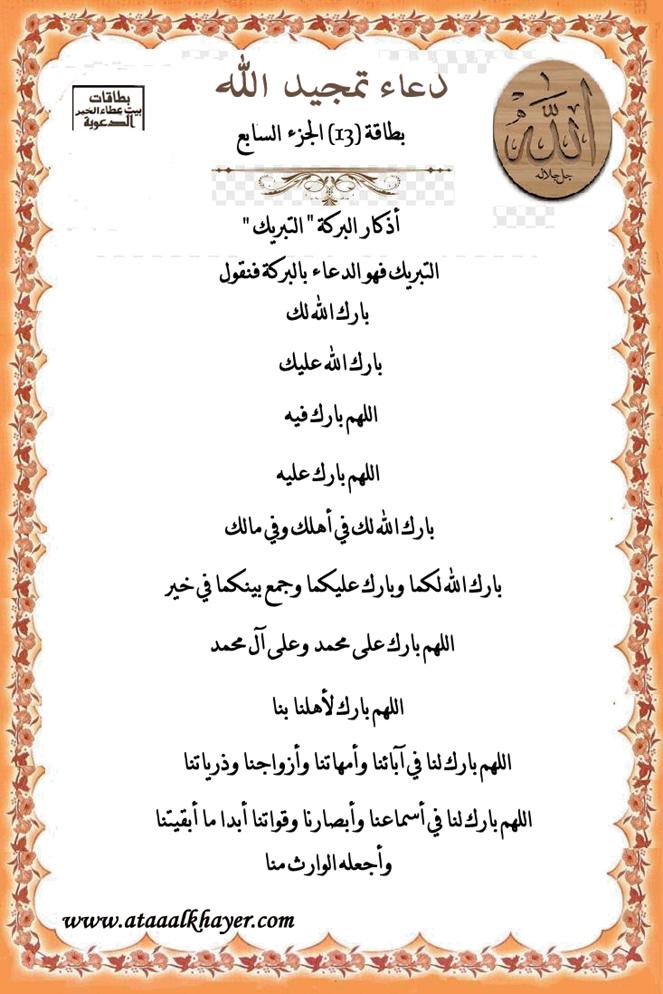 دعاء تمجيد الله
بطاقات
بيت عطاء الخير
الدعوية
الله
جل جلاله
بطاقة (13) الجزء السابع
أذكار البركة " التبريك "
التبريك فهو الدعاء بالبركة فنقول
بارك الله لك
بارك الله عليك
اللهم بارك فيه
اللهم بارك عليه
بارك الله لك في أهلك وفي مالك
بارك الله لكما وبارك عليكما وجمع بينكما في خير
اللهم بارك على محمد وعلى آل محمد
اللهم بارك لأهلنا بنا
اللهم بارك لنا في آبائنا وأمهاتنا وأزواجنا وذرياتنا
اللهم بارك لنا في أسماعنا وأبصارنا وقواتنا أبدا ما أبقيتنا
وأجعله الوارث منا
www.ataaalkhayer.com